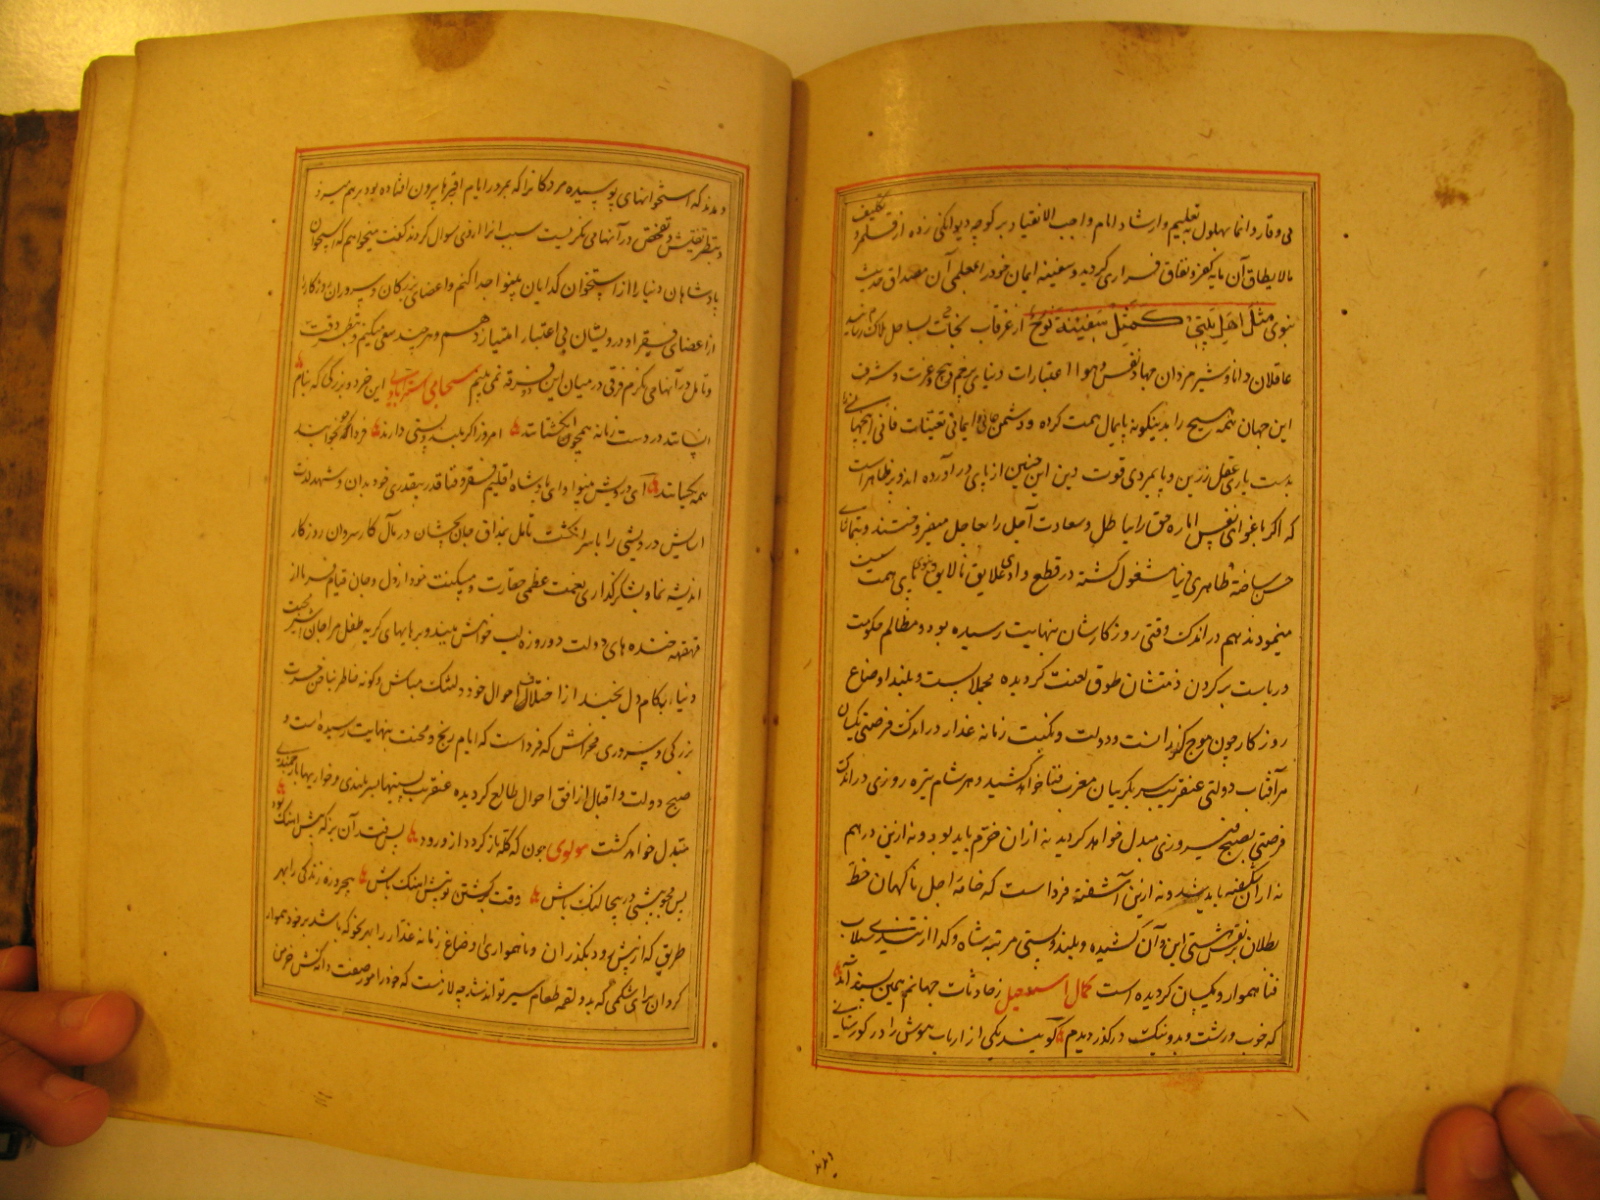 می وقار دانا بهلول به تعلیم و ارشاد امام واجب الانقیاد بر کوچه دیوانگی زده از قلمرو تکلیف
مالایطاق آن مایه کفر و نفاق فراری گردید و سفینه ایمان خود را بمعلمی آن مصداق حدیث
نبوی مثل اهل بیتی کمثل سفینة نوح از غرقاب بساحل رسانید
عاقلان دانا و شیرمردان جهاد نفس و هوا اعتبارات دنیای پرخم و پیچ و عزت و شرف
این جهان همه هیچ را بدینگونه پایمال همت کرده و دشمن تعینات فانی اینجهانی را
بدست یاری عقل رزین و پایمردی قوت دین این چنین از پای در آورده اند و بر ظاهر است
که اگر باغوای نفس اماره حق را بباطل و سعادت آجل را بعاجل میفروختند و بتمنای
ظاهری دنیا مشغول گشته در قطع وادی علایق نالایق دنیوی پای همت
مینمودند هم در اندک وقتی روزگارشان بنهایت رسیده بود و مظالم حکومت
و ریاست بر گردن ذمتشان طوق لعنت گردیده مجملا پست و بلند اوضاع
روزگار چون موج گذرانست و دولت و نکبت زمانه غدار در اندک فرصتی یکسان
هر آفتاب دولتی عنقریب سر بگریبان مغرب فنا خواهد کشید و هر شام تیره روزی در اندک
فرصتی بصبح فیروزی مبدل خواهد گردید نه از آن خرم باید بود و نه ازین درهم
نه از آن شکفته باید شد و نه ازین آشفته فرداست که خامه اجل ناگهان خط
بطلان بر نقش هستی این و آن کشیده و بلند و پستی مرتبه شاه و گدا از تندی سیلاب
فنا هموار و یکسان گردیده است کمال اسمعیل ز حادثات جهانم همین پسند آمد
که خوب و زشت و بد و نیک در گذر دیدم گویند یکی از ارباب هوش را در گورستانی
دیدند که استخوانهای پوسیده مردگانرا که بمرور ایام از قبرها بیرون افتاده بود بر هم میزد
و بنظر تفتیش و تفحص در آنها می نگریست سبب آنرا از وی سوال کردند گفت میخواهم که استخوان
پادشاهان دنیا را از استخوان گدایان بینوا جدا کنم و اعضای بزرگان و سروران روزگار را
از اعضای فقرا و درویشان بی اعتبار امتیاز دهم و هر چند سعی میکنم و بنظر دقت
و تامل در آنها می نگرم فرقی در میان این دو فرقه نمی یابم سحابی استرابادی این خرد و بزرگی که بنام
در دست زمانه همچون انگشتانند امروز اگر بلند و پستی دارند فردا که بخوابند
همه یکسانند ای درویش بینوا و ای پادشاه اقلیم فقر و فنا قدر بیقدری خود بدان و شهد لذت
درویشی را با سر انگشت تامل بمذاق جان بچشان در مآل کار سردان روزگار
اندیشه نما و بشکرگذاری نعمت عظمی حقارت و مسکنت خود از دل و جان قیام فرما از
قهقهه خنده های دولت دو روزه لب خواهش ببند و بر های های گریه طفل مزاجان
دنیا بکام دل بخند از اختلال احوال خود دلتنگ مباش و گونه خاطر بناخن حسرت
بزرگی و سروری مخراش که فرداست که ایام رنج و محنت بنهایت رسیده است و
صبح دولت و اقبال از افق احوال طالع گردیده عنقریب پستیها بسربلندی و خواریها بارجمندی
مبدل خواهد گشت مولوی چون که گله باز گردد از ورود پس فتد آن بز که پیش آهنگ بود
پس درینجا لنگ باش وقت برگشتن تو پیش آهنگ باش پنجروزه زندگی را بهر
طریق که از پیش رود بگذران و ناهمواری اوضاع زمانه غدار را بهر نحو که باشد بر خود هموار
گردان برای شکمی که بدو لقمه طعام سیر تواند شد چه لازمست که خود را